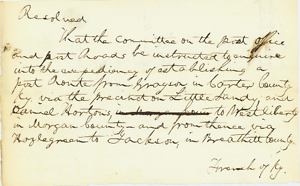 Resolved
That the Committee on the post office
and post Roads be instructed to enquire
into the expediency of establishing a
post Route from Grayson in Carter County
Ky via the precinct on Little Sandy and
Daniel Hortons, to West Liberty
in Morgan County - and from thence via
Hazlegreen to Jackson, in Breathitt County
French of Ky.